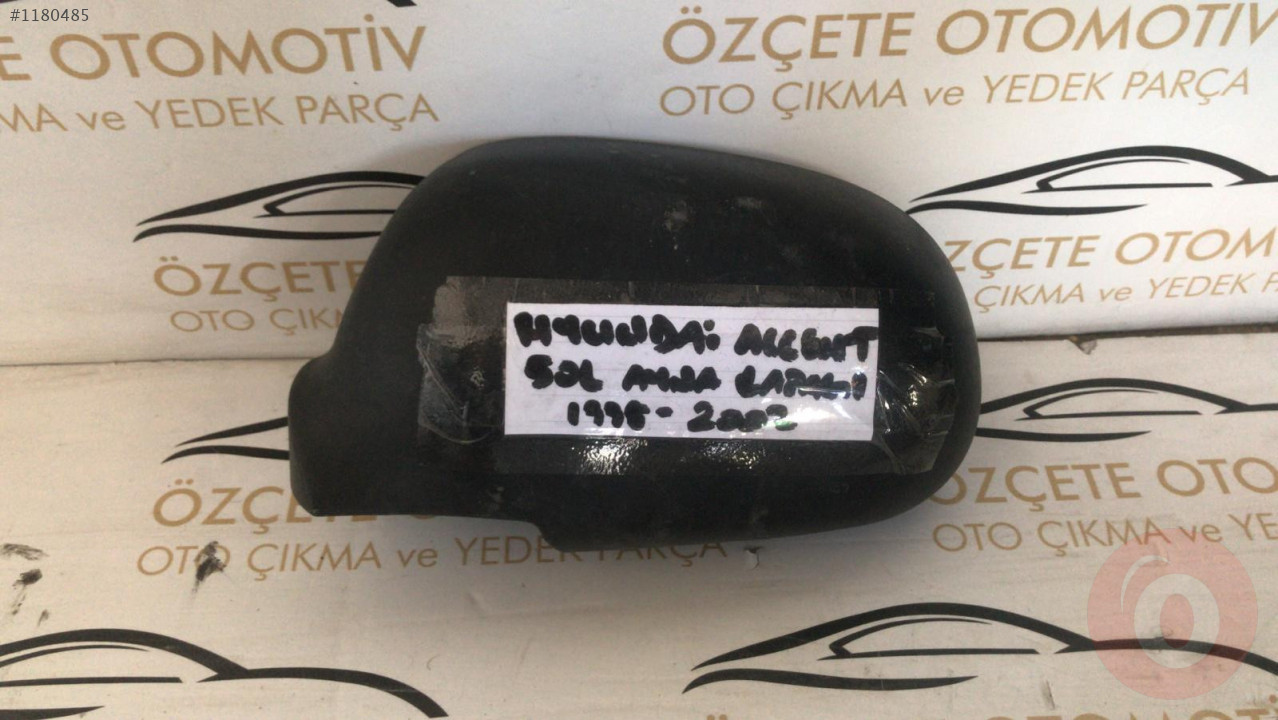 #1180485
E OTOMOTİV
MA ve YEDEK PARÇA
ÖZÇETE OTOMOTİV
OTO ÇIKMA ve YEDEK PARÇA
ÖZÇETE
OTO ÇIKM
ZÇETE OTOM
ÇIKMA ve YEDEK P
HYUNDAi ACCENT
SOL AYNA KAPAĞI
1998-2002
ÖZÇETE O
OTO ÇIKMA ve YEDEK PARÇA
ÖZÇETE OTO
OTO ÇIKMA ve YE